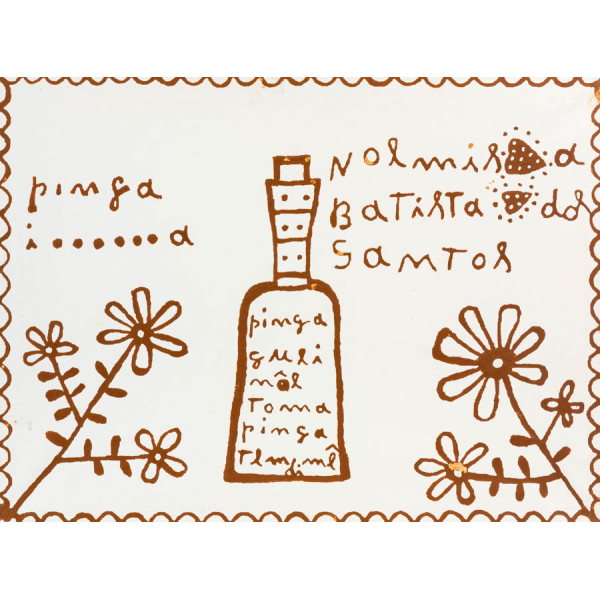 pinga
i.......a
Nolmisa
Batista dos
Santos
pinga
guli
nôl
Toma
pinga